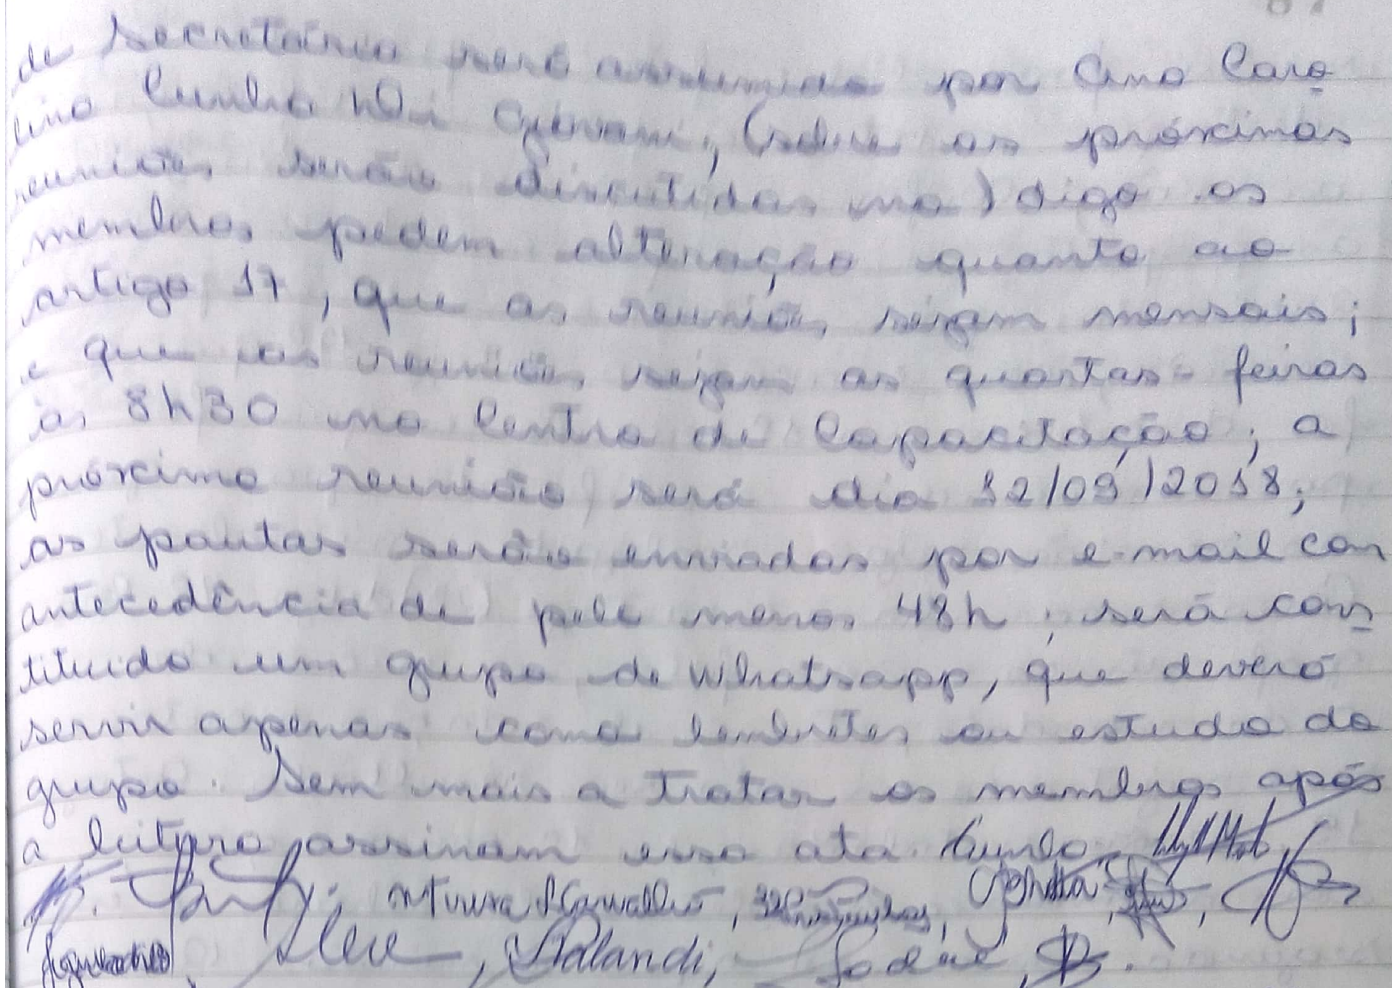 de Secretária será assumida por Ana Caro
lina Cunha Di Giovani; (sobre as próximas
reuniões serão discutidas na) digo os
membros pedem alteração quanto ao
artigo 17, que as reuniões sejam mensais;
e que as reuniões sejam as quartas-feiras
às 8h30 no Centro de Capacitação; a
próxima reunião será dia 12/09/2018;
as pautas serão enviadas por e-mail com
antecedência de pelo menos 48h; será cons
tituido um grupo de whatsapp, que deverá
servir apenas como lembretes ou estudo do
grupo. Sem mais a tratar os membros após
a leitura assinam essa ata. Cunha
Carvalho,
Alalandi,